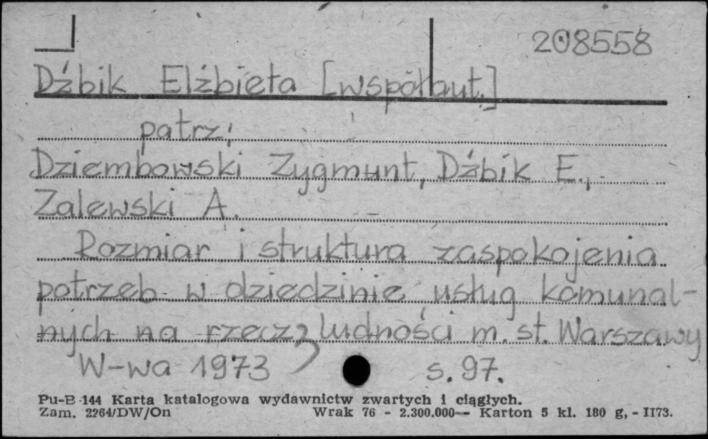 208558
Dźbik Elżbieta [współaut.]
patrz:
Dziembowski Zygmunt, Dźbik E.,
Zalewski A.
Rozmiar i struktura zaspokojenia
potrzeb w dziedzinie usług komunal-
nych na rzecz ludności m. st. Warszawy
W-wa 1973 s. 97.
Pu-B-144 Karta katalogowa wydawnictw zwartych i ciągłych.
Zam. 2264/DW/On Wrak 76 - 2.300.000— Karton 5 kl. 180 g, - II73.